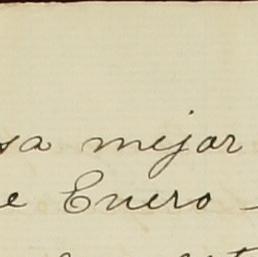 sa mejor
e Enero -